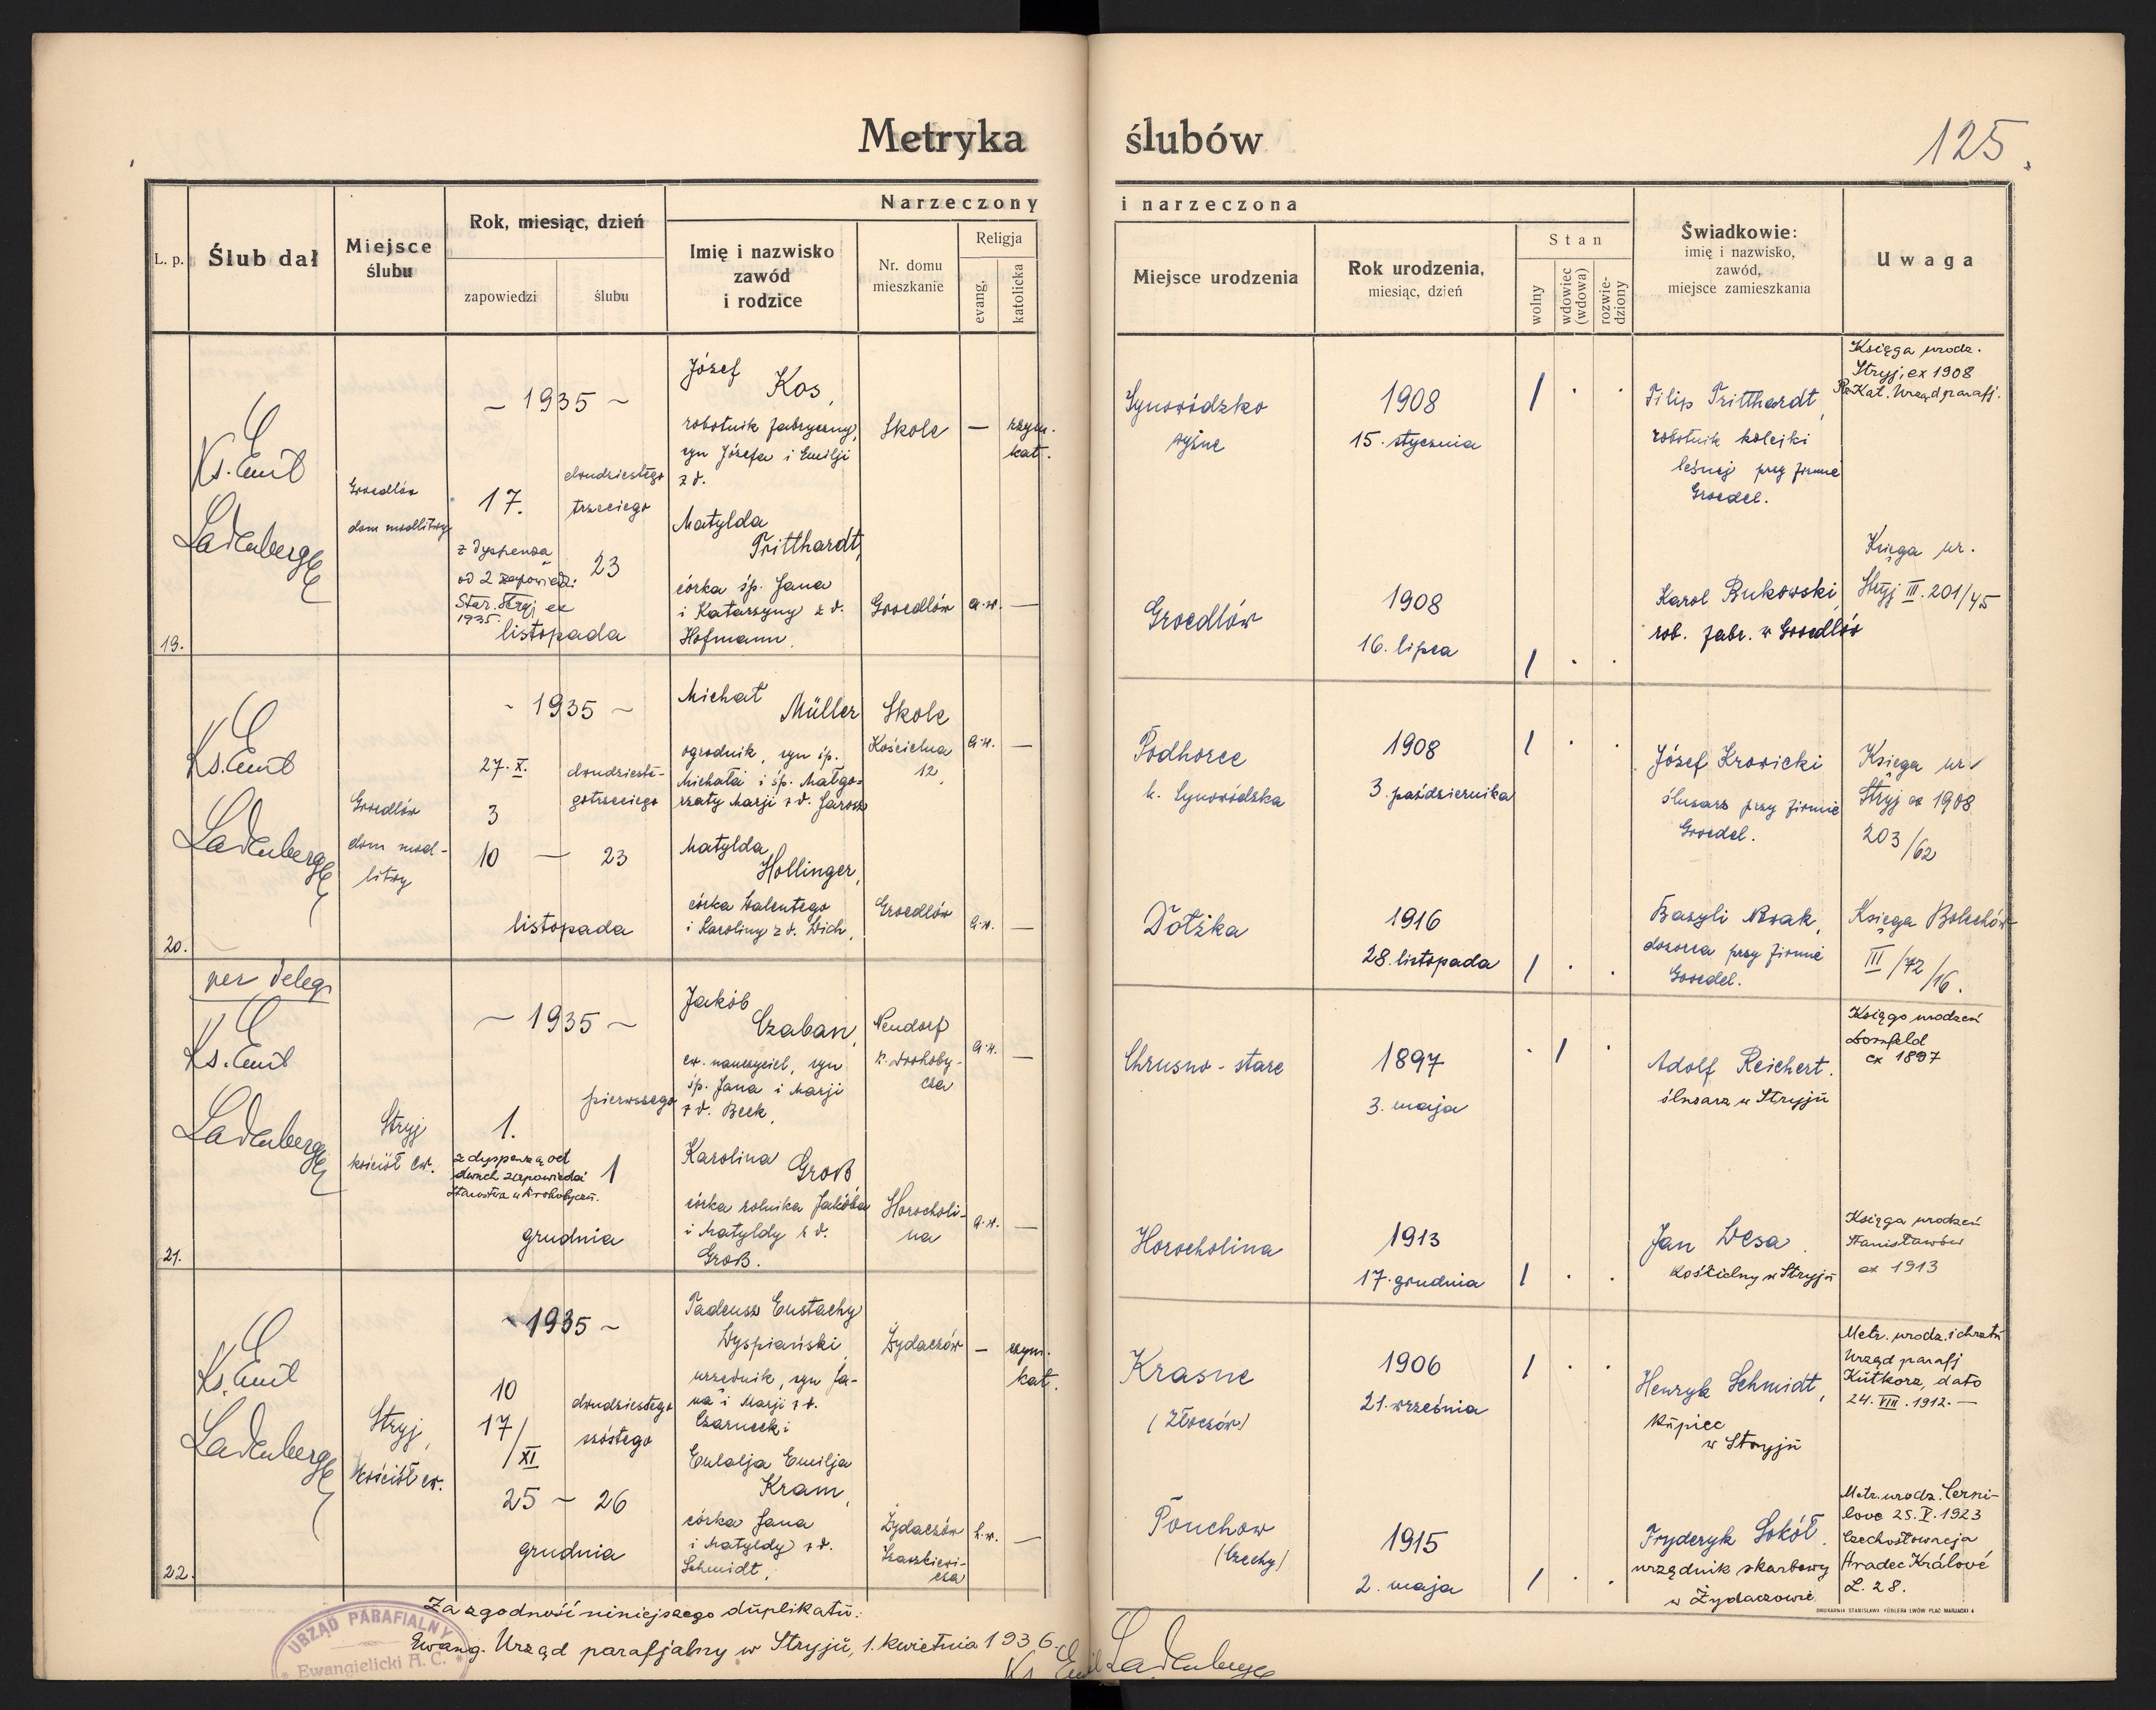 Metryka ślubów
125.
Narzeczony i narzeczona
L. p.
Ślub dał
Miejsce
ślubu
Rok, miesiąc, dzień
zapowiedzi
ślubu
Imię i nazwisko
zawód
i rodzice
Nr. domu
mieszkanie
Religja
evang.
katolicka
Miejsce urodzenia
Rok urodzenia,
miesiąc, dzień
Stan
wolny
wdowiec
(wdowa)
rozwie-
dziony
Świadkowie:
imię i nazwisko,
zawód,
miejsce zamieszkania
Uwaga
19.
Ks. Emil
Ladenberger
Groedlów
dom modlitwy
- 1935 -
17.
z dyspenzą
od 2 zapowiedzi
Star. Stryj ex
1935.
dwudziestego
trzeciego
23
listopada
Józef
Kos,
robotnik fabryczny,
syn Józefa i Emilji
z d.
Skole
—
rzym.
kat.
Synowódzko
wyżne
1908
15. stycznia
/ . .
Filip Tritthardt,
robotnik kolejki
leśnej przy firmie
Groedel.
Księga urodz.
Stryj, ex 1908
Rz. Kat. Urząd parafj.
Matylda
Tritthardt,
córka śp. Jana
i Katarzyny z d.
Hofmann.
Groedlów
a.w. —
Groedlów
1908
16. lipca
/ . .
Karol Bukowski,
rob. fabr. w Groedlów
Księga ur.
Stryj III. 201/45
20.
Ks. Emil
Ladenberger
Groedlów
dom mod-
litwy
- 1935 -
27. X.
3
10 — 23
dwudzieste-
gotrzeciego
listopada
Michał
Müller
ogrodnik, syn śp.
Michała i śp. Małgo-
rzaty Marji z d. Jarosz
Skole
Kościelna
12.
a.w. —
Podhorce
k. Synowódzka
1908
3. października
/ . .
Józef Krowicki
ślusarz przy firmie
Groedel.
Księga ur.
Stryj ex 1908
203/62
Matylda
Hollinger,
córka Walentego
i Karoliny z d. Wich.
Groedlów
a.w. —
Dołżka
1916
28. listopada
/ . .
Bazyli Nowak,
dozorca przy firmie
Groedel.
Księga Bolechów
III/72/16.
21.
per deleg.
Ks. Emil
Ladenberger
Stryj
kościół ew.
- 1935 -
1.
z dyspenzą od
dwuch zapowiedzi
Starostwa w Drohobyczu.
pierwszego
1
grudnia
Jakób
Czaban,
ew. nauczyciel, syn
śp. Jana i Marji
z d. Beck.
Neudorf
k. Drohoby-
cza
a.w. —
Chrusno-stare
1897
3. maja
. / .
Adolf Reichert.
ślusarz w Stryju
Księga urodzeń
Dornfeld
ex 1897
Karolina
Groß
córka rolnika Jakóba
i Matyldy z d.
Groß.
Horocholi-
na
a.w. —
Horocholina
1913
17. grudnia
/ . .
Jan Wesa.
kościelny w Stryju
Księga urodzeń
Stanisławów
ex 1913
22.
Ks. Emil
Ladenberger
Stryj,
kościół ew.
- 1935 -
10
17/XI
25 - 26
dwudziestego
szóstego
grudnia
Tadeusz Eustachy
Wyspiański,
urzędnik, syn Ja-
na i Marji z d.
Czarnecki
Żydaczów
—
rzym.
kat.
Krasne
(Złoczów)
1906
21. września
/ . .
Henryk Schmidt,
kupiec
w Stryju
Metr. urodz. i chrztu
Urząd parafj
Kutkorz, dato
24. VIII. 1912. —
Eulalja Emilja
Kram,
córka Jana
i Matyldy z d.
Schmidt.
Żydaczów
—
Ponchow
(Czechy)
1915
2. maja
/ . .
Fryderyk Sokół.
urzędnik skarbowy
w Żydaczowie
Metr. urodz. Cerni-
love 25. V. 1923
Czechosłowacja
Hradec Králové
L. 28.
DRUKARNIA STANISŁAWA KÜBLERA LWÓW PLAC MARJACKI 4
Za zgodność niniejszego duplikatu:
Ewang. Urząd parafjalny w Stryju, 1. kwietnia 1936.
Ks. Emil Ladenberger
URZĄD PARAFIALNY
Ewangielicki A. C.